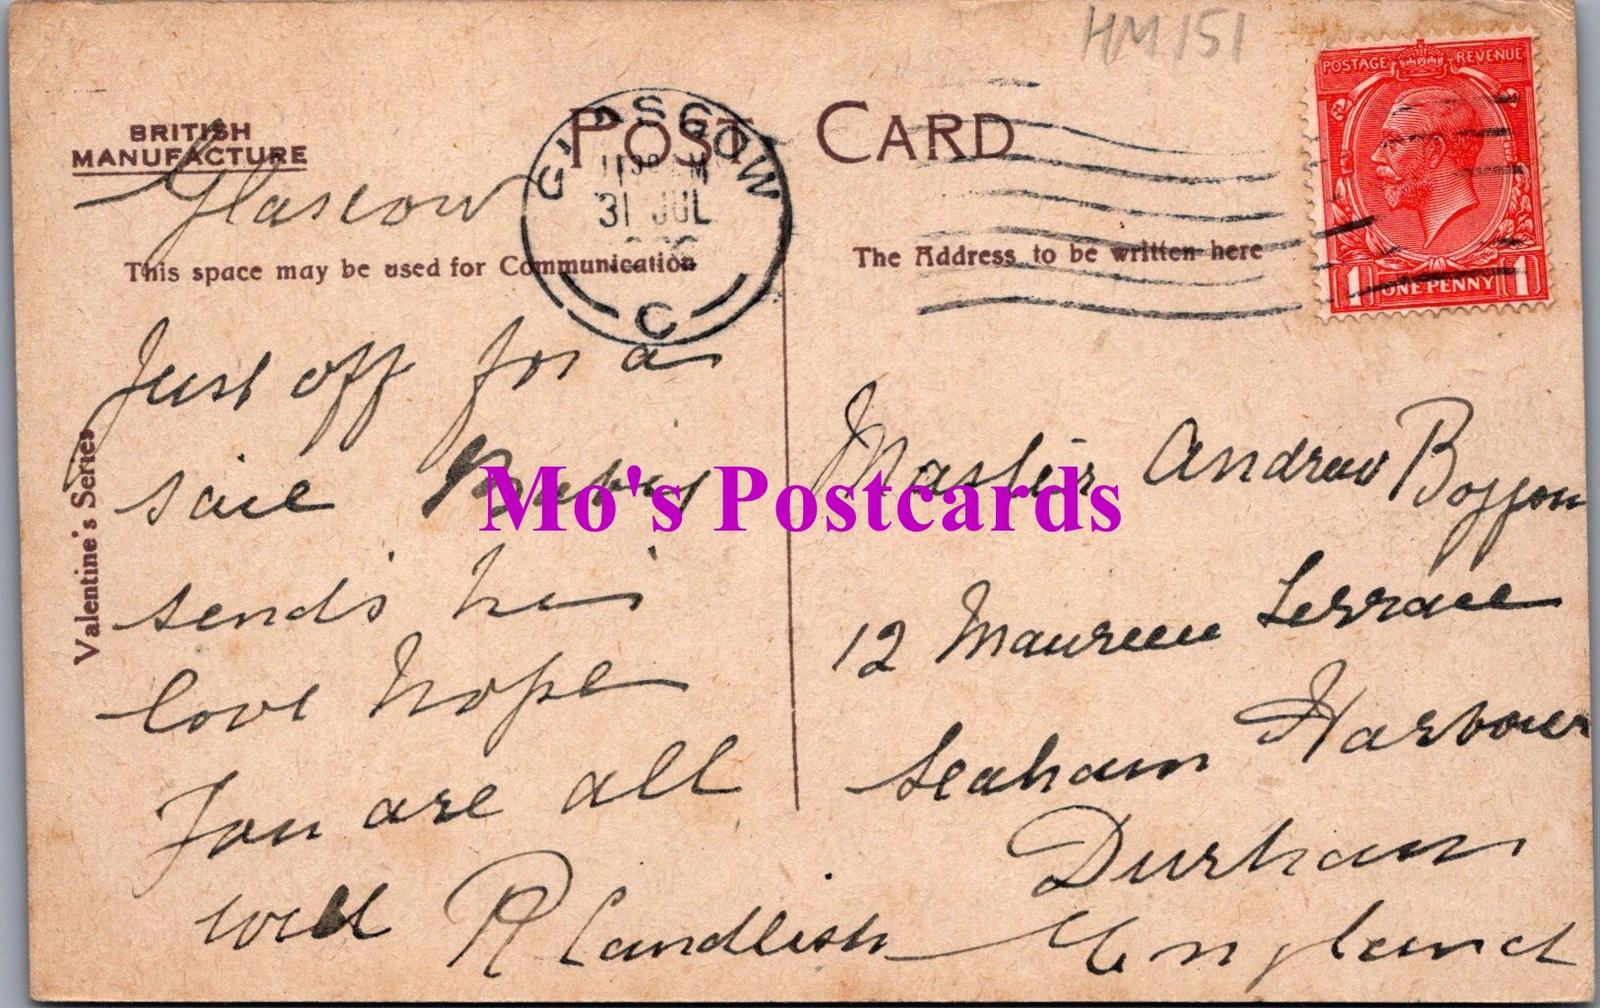 HM151
POSTAGE REVENUE
BRITISH
MANUFACTURE
POST CARD
GLASGOW
31 JUL
C
1 ONE PENNY 1
Glascow
This space may be used for Communication
The Address to be written here
Valentine's Series
Just off for a
saie Baby
sends his
love hope
You are all
well R Candlish
Mo's Postcards
Master Andrew
12 Maureen Terrace
Seaham Harbour
Durham
England